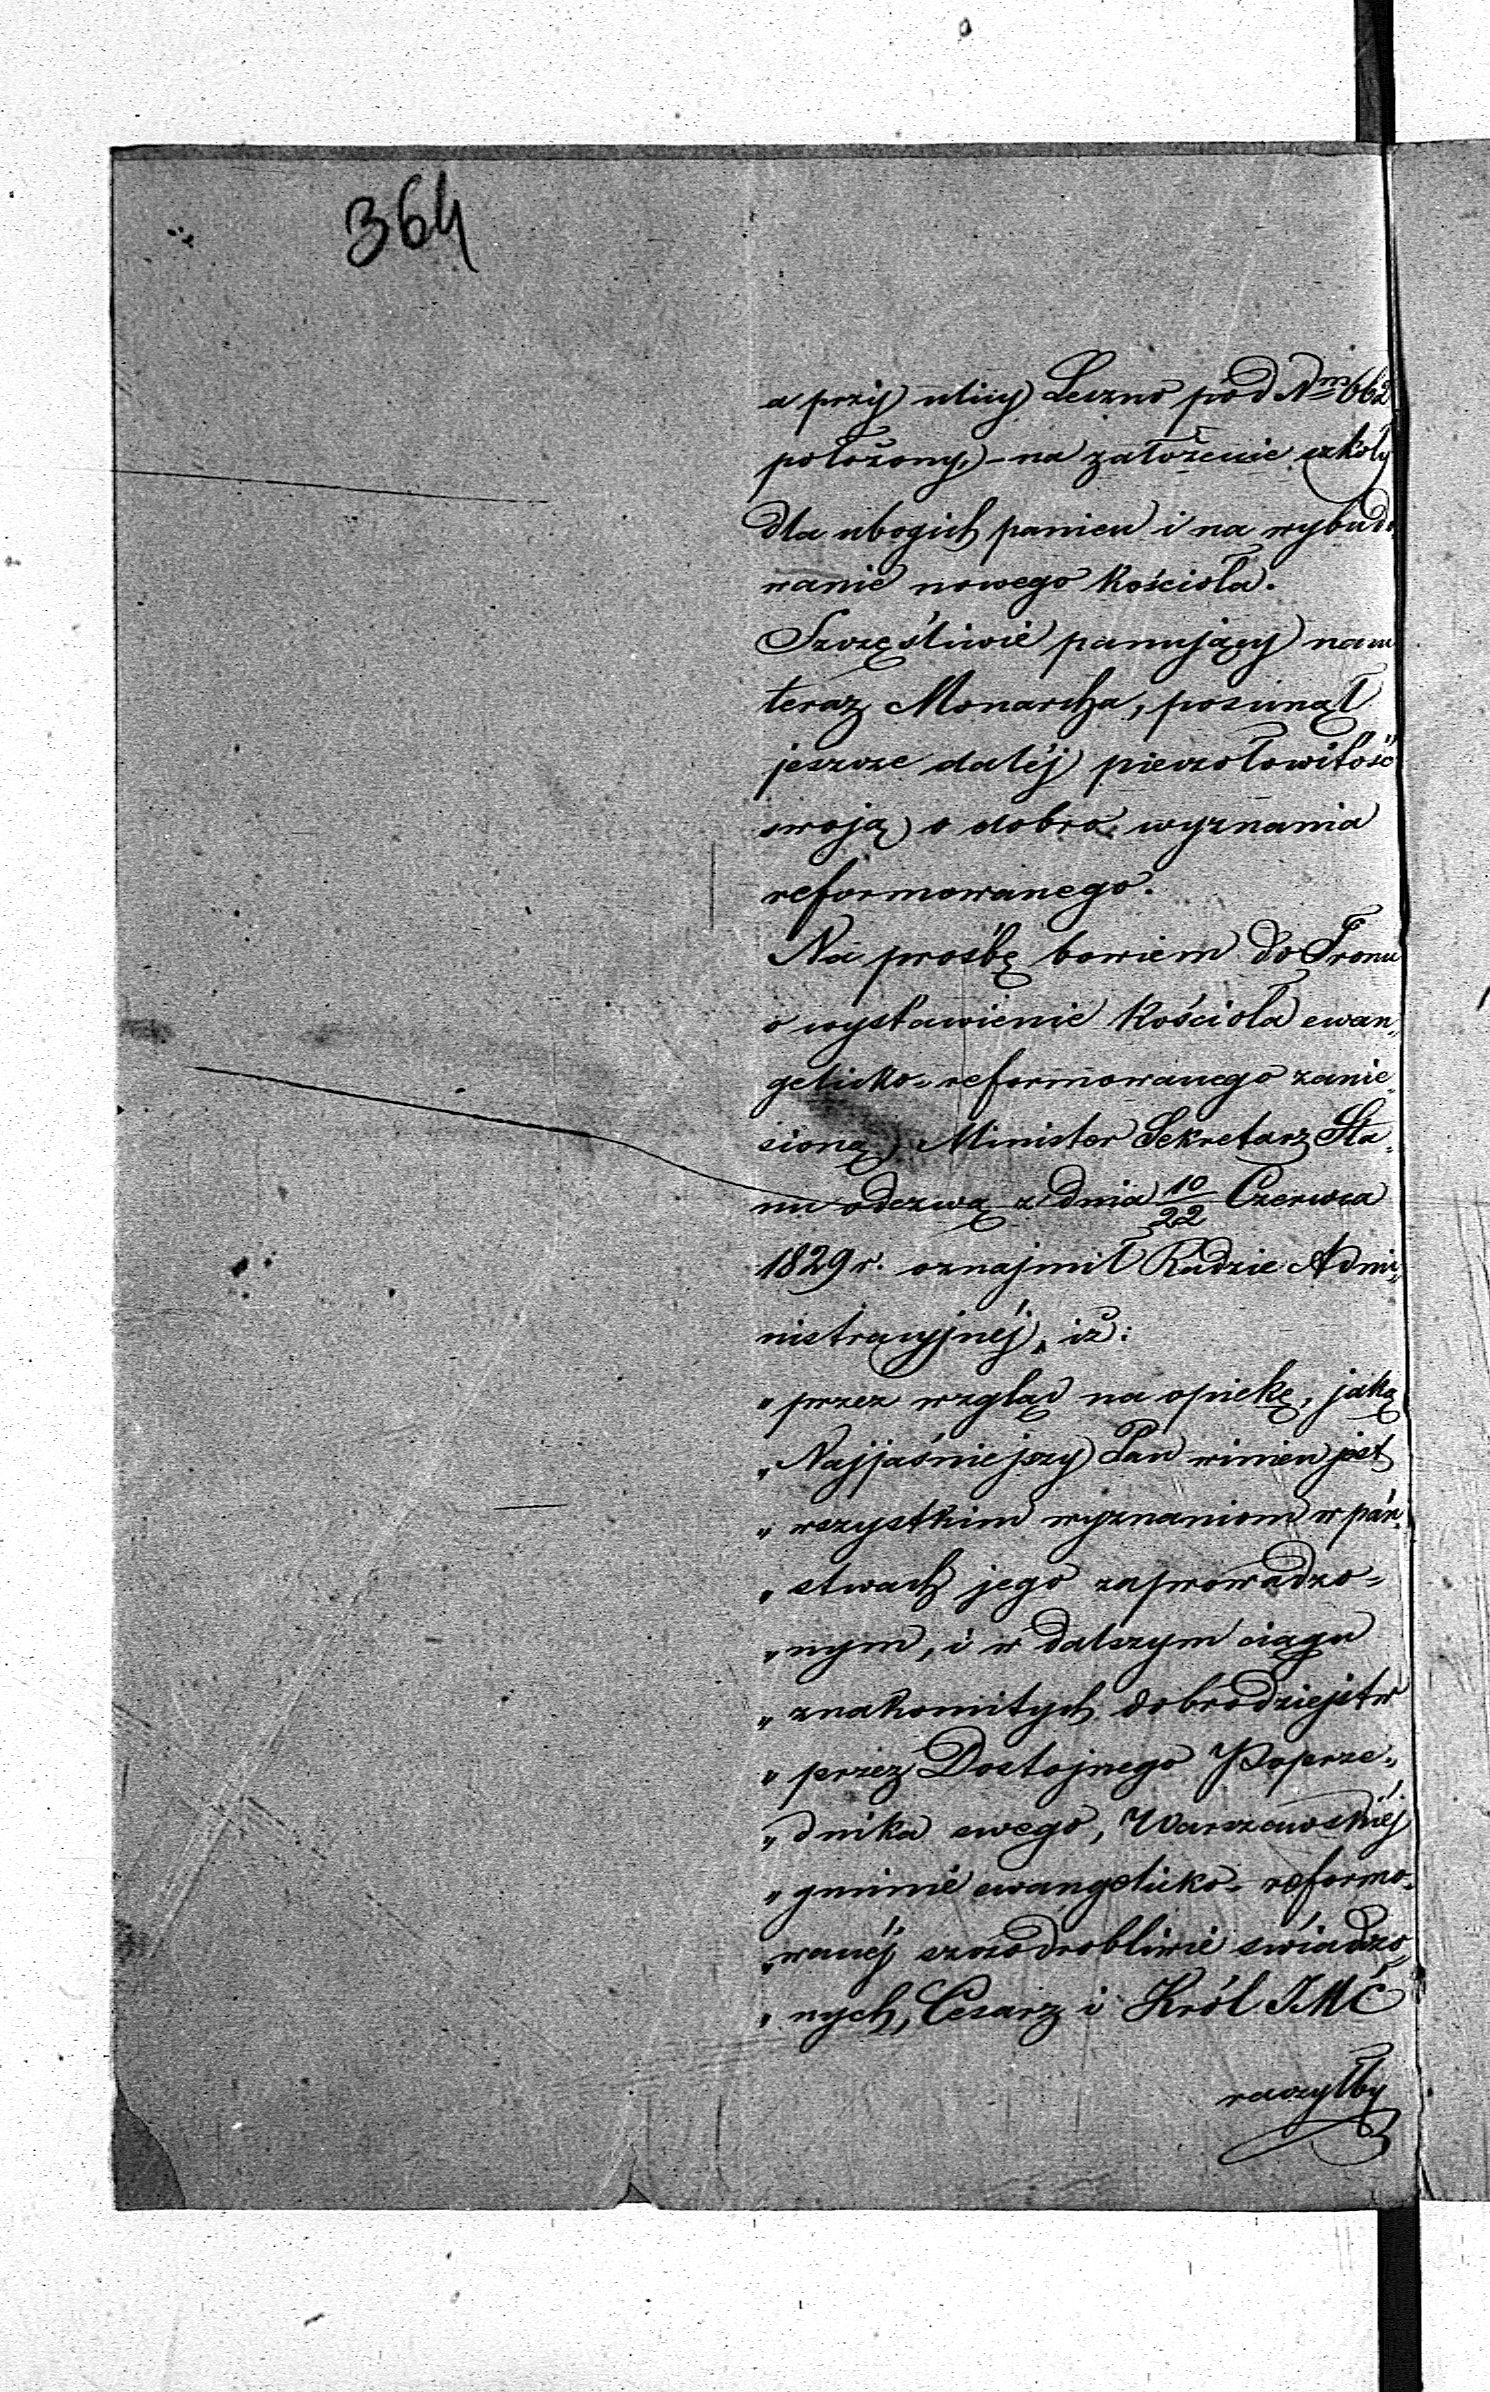 364
a przy ulicy Leszno pod Nm 662
położony,) – na założenie szkoły
dla ubogich panien i na wybudo
wanie nowego kościoła.
Szczęśliwie panujący nam
teraz Monarcha, posunął
jeszcze daléj pieczołowitość
swoją o dobro wyznania
reformowanego.
Na prośbę bowiem do Tronu
o wystawienie kościoła ewan„
gelicko-reformowanego zanie„
sioną, Minister Sekretarz Sta„
nu odezwą z dnia 10/22 Czerwca
1829 r. oznajmił Radzie Admi„
nistracyjnéj, iż:
„przez wzgląd na opiekę, jaką
„Najjaśniejszy Pan winien jest
„wszystkim wyznaniom w pań„
„stwach jego zaprowadzo=
„nym, i w dalszym ciągu
„znakomitych dobrodziejstw
„przez Dostojnego Poprze„
„dnika swego, Warszawskiéj
„gminie ewangelicko-reformo„
„wanéj szczodrobliwie świadczo„
„nych, Cesarz i Król JMć
raczyłby